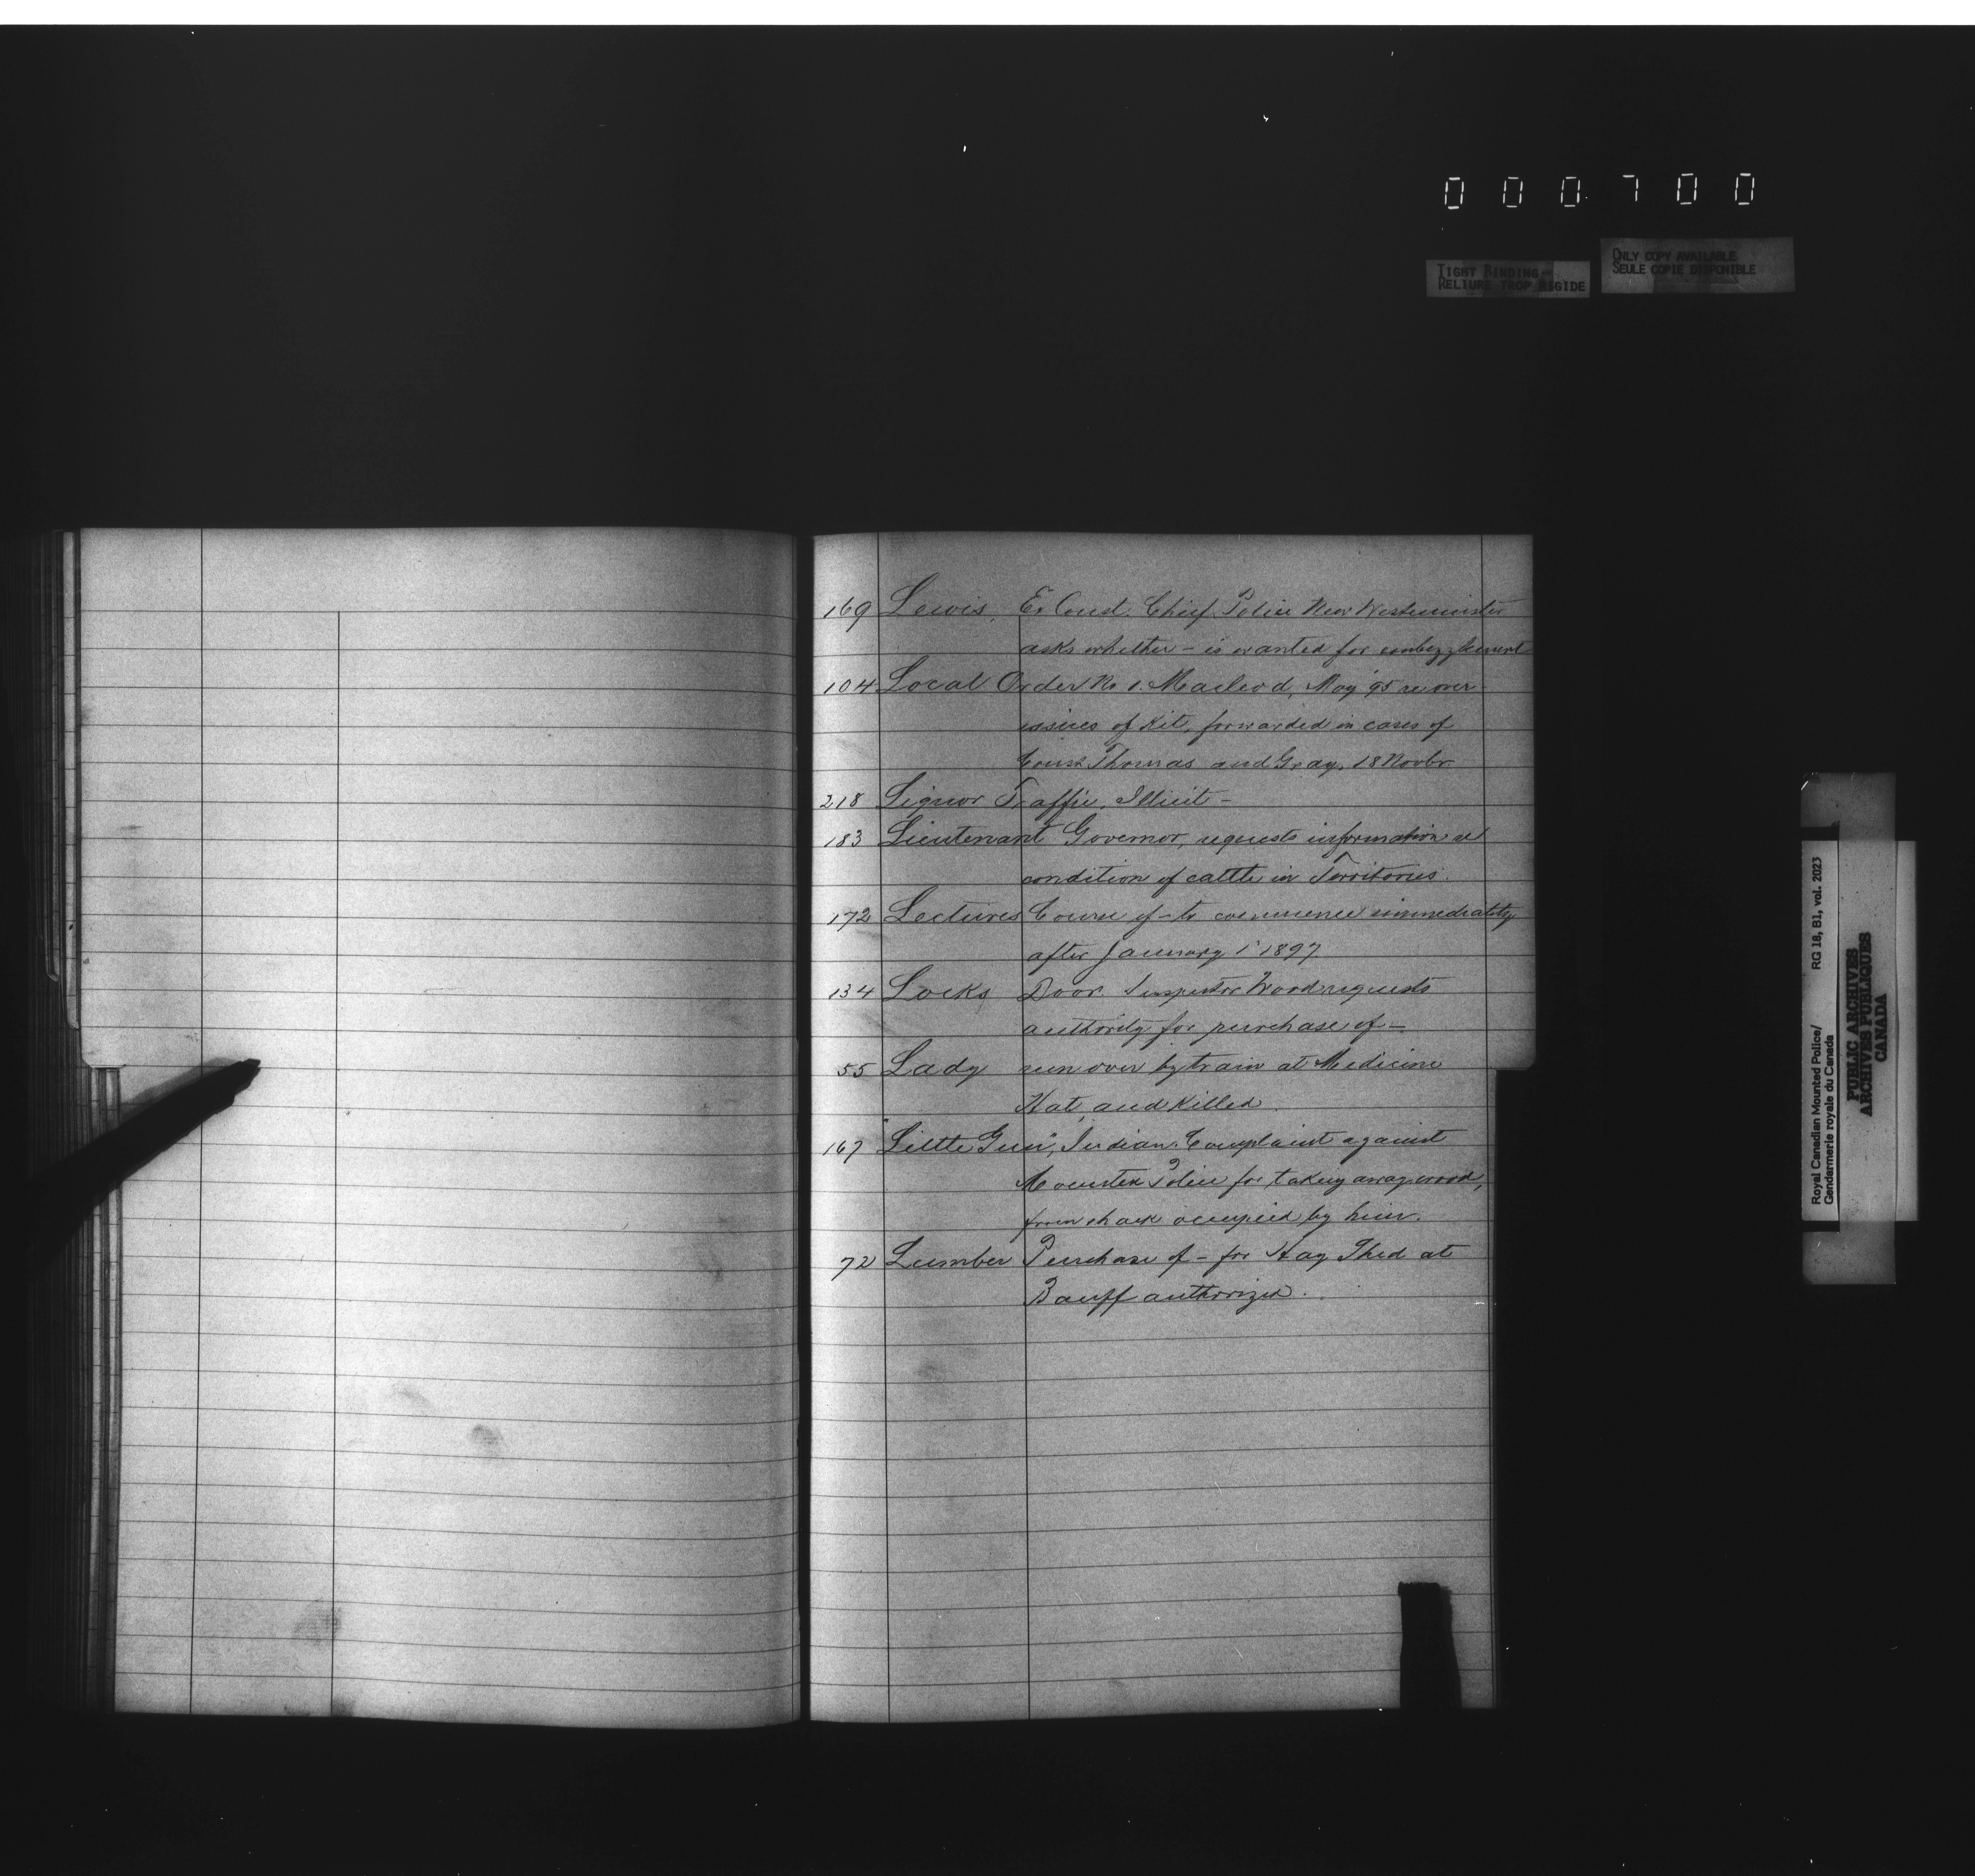 000700
TIGHT BINDING
RELIURE TROP RIGIDE
ONLY COPY AVAILABLE
SEULE COPIE DISPONIBLE
169 Lewis, Ex Const. Chief Police New Westminster
asks whether - is wanted for embezzlement
104 Local Order No 1. Macleod, May '95 re over-
issues of Kit, forwarded in cases of
Const Thomas and Gray, 18 Novbr.
218 Liquor Traffic, Illicit -
183 Lieutenant Governor, requests information re
condition of cattle in Territories.
172 Lectures Course of - to commence immediately
after January 1st 1897
134 Locks Door. Inspector Wood requests
authority for purchase of -
55 Lady run over by train at Medicine
Hat, and Killed.
167 "Little Gun", Indian. Complaint against
Mounted Police for taking away wood,
from shack occupied by him.
72 Lumber Purchase of - for Hay Shed at
Banff authorized.
Royal Canadian Mounted Police/ RG 18, B1, vol. 2023
Gendarmerie royale du Canada
PUBLIC ARCHIVES
ARCHIVES PUBLIQUES
CANADA